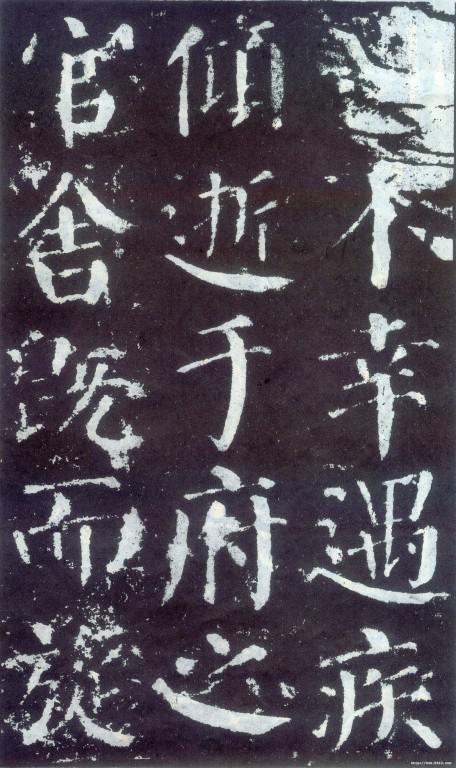 不幸遇疾
傾逝于府之
官舍既而旋